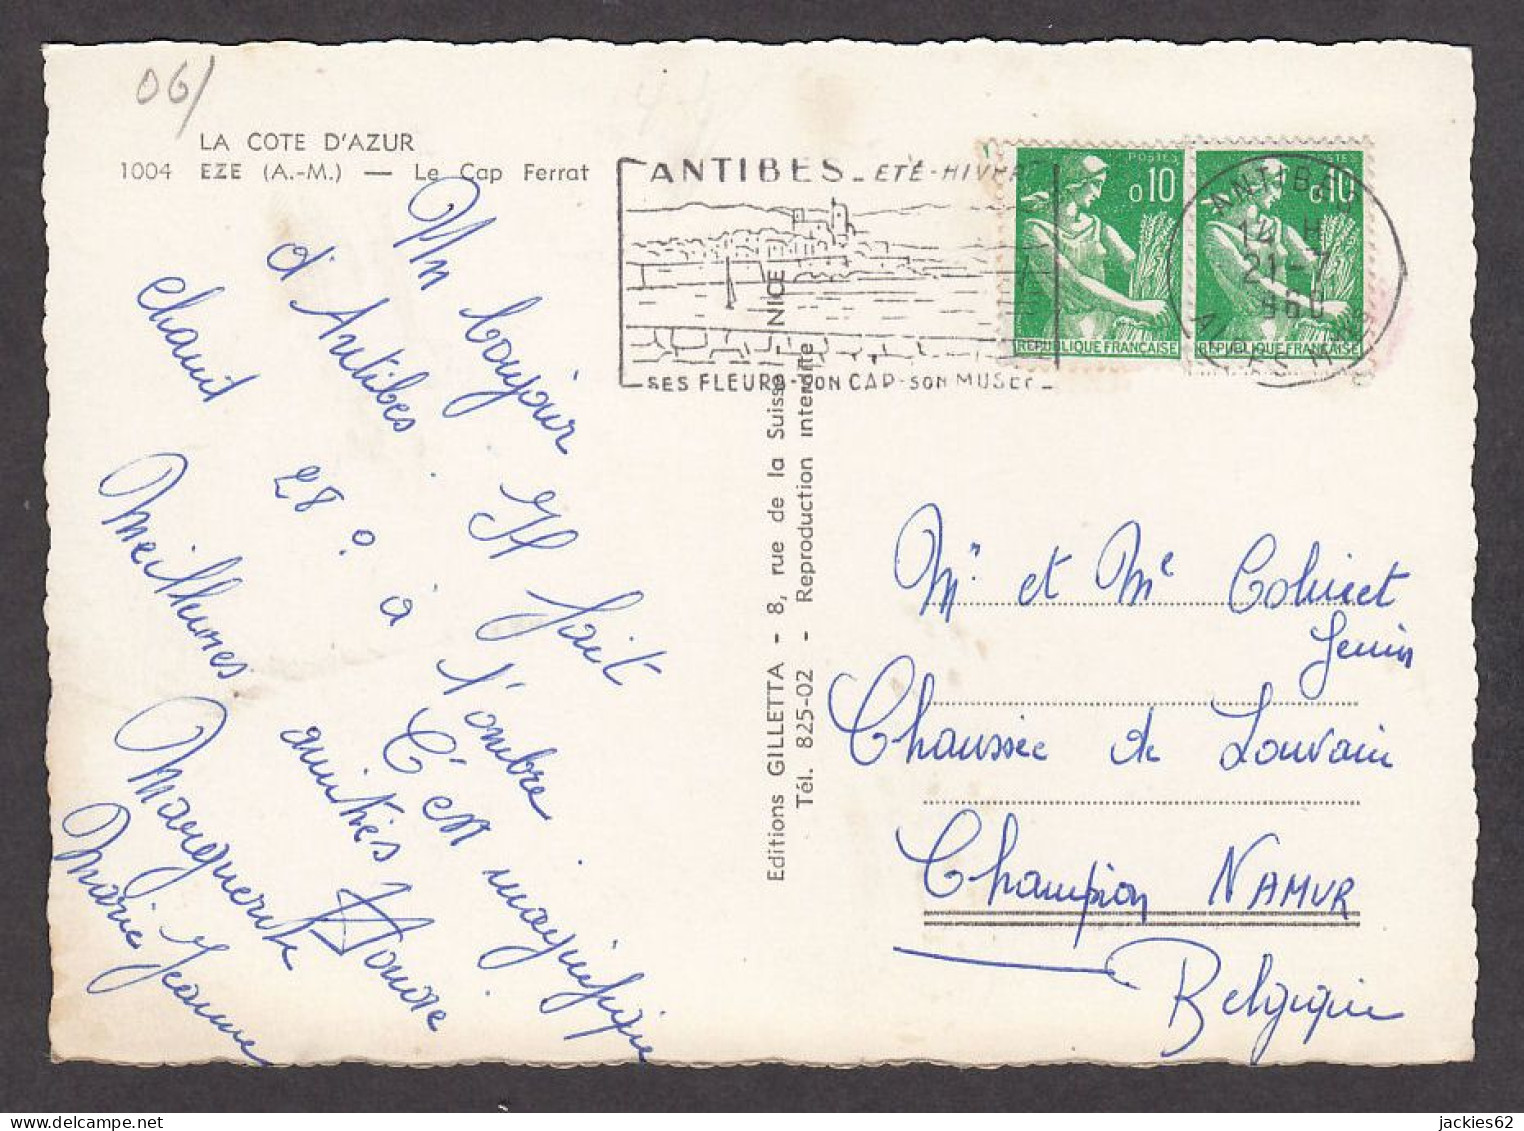 06/
LA COTE D'AZUR
1004 EZE (A.-M.) — Le Cap Ferrat
Un bonjour
d'Antibes. Il fait
chaud 28° à l'ombre
C'est magnifique
Meilleures amitiés
Marguerite
Marie Jeanne
ANTIBES_ETÉ-HIVER
SES FLEURS-SON CAP-SON MUSEE_
POSTES
0,10
REPUBLIQUE FRANÇAISE
POSTES
0,10
REPUBLIQUE FRANÇAISE
ANTIBES
14 H
21-7
1960
ALPES MMES
Editions GILLETTA - 8, rue de la Suisse - NICE
Tél. 825-02 - Reproduction interdite
Mr. et Me
Chaussée de Louvain
Champion NAMUR
Belgique
jackies62